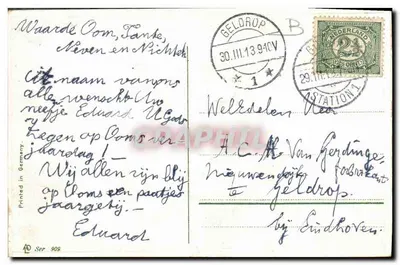 Waarde Oom, Tante,
Neven en Nichten
Uit naam van ons
alle wenscht Uw
neefje Eduard U Gods
zegen op Ooms ver
jaardag! —
Wij allen zijn blij
op Ooms en paatjes
jaargetij. —
Eduard
Printed in Germany
Ser. 909
GELDROP
30.III.13 9-10V
* 1 *
B
NEDERLAND
2½
29.III
STATION 1
Weledelen Heer
A.C.M. Van Gerdinge
Nieuwendijk
Geldrop.
bij Eindhoven.
CPAPHIL.COM